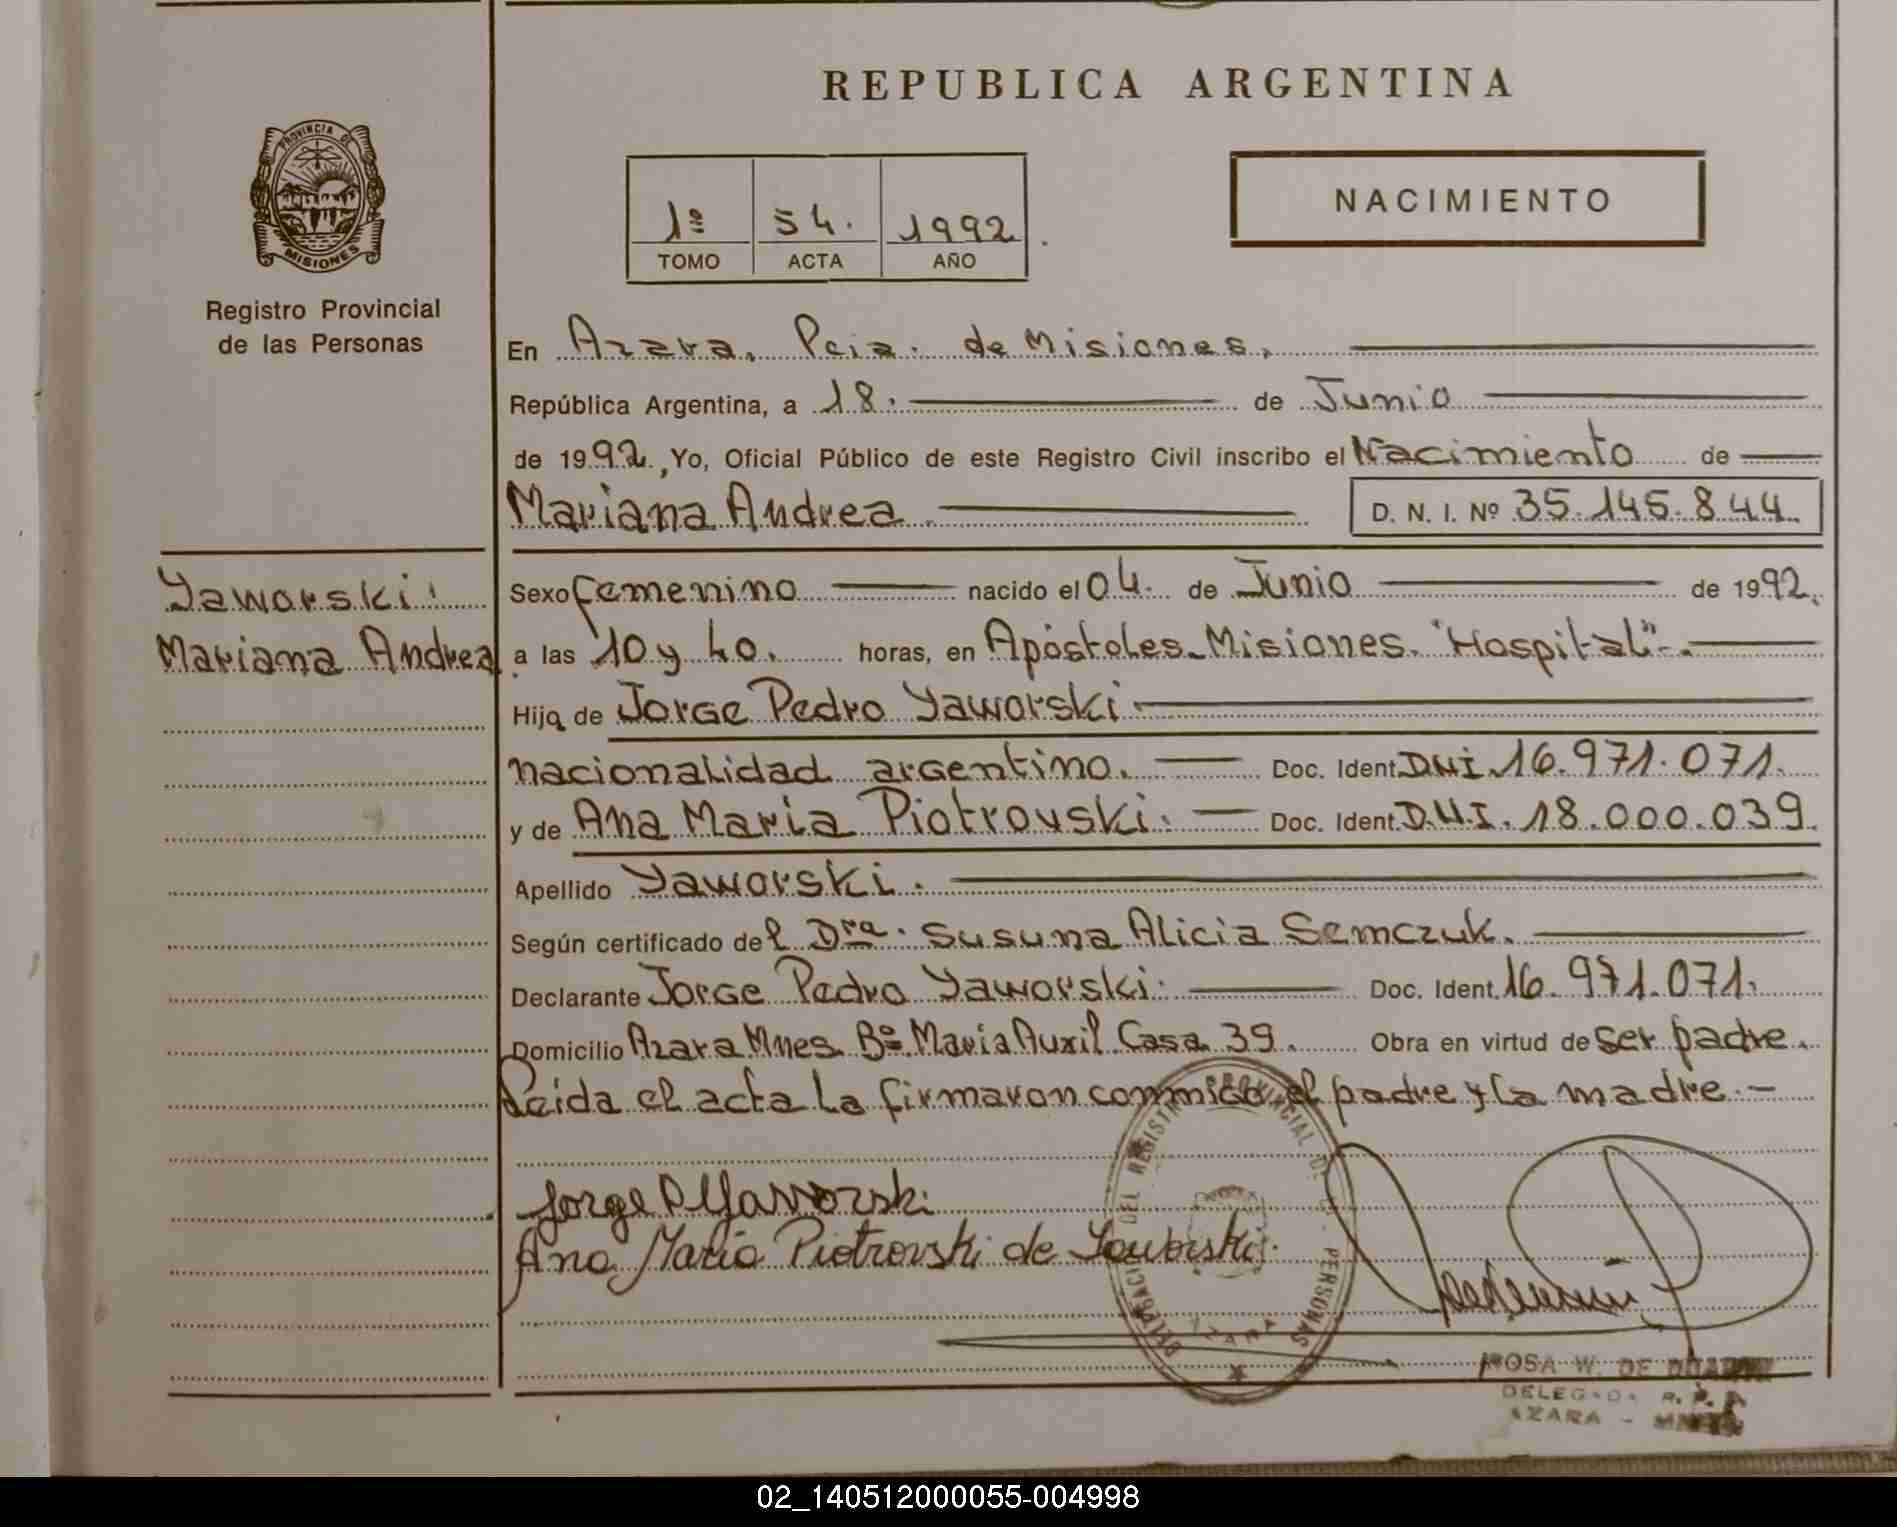 REPUBLICA ARGENTINA
PROVINCIA DE
MISIONES
Registro Provincial
de las Personas
1º 54. 1992
TOMO ACTA AÑO
NACIMIENTO
En Azara, Pcia. de Misiones,
República Argentina, a 18. de Junio
de 1992, Yo, Oficial Público de este Registro Civil inscribo el Nacimiento de
Mariana Andrea D. N. I. Nº 35.145.844.
Yaworski
Mariana Andrea
Sexo femenino nacido el 04. de Junio de 1992.
a las 10 y 40. horas, en Apóstoles-Misiones. "Hospital".-
Hija de Jorge Pedro Yaworski
nacionalidad argentino. Doc. Ident. DNI. 16.971.071.
y de Ana Maria Piotrovski. Doc. Ident. D.N.I. 18.000.039.
Apellido Yaworski.
Según certificado del Dra. Susuna Alicia Semczuk.
Declarante Jorge Pedro Yaworski. Doc. Ident. 16.971.071.
Domicilio Azara Mnes. Bº Maria Auxil. Casa 39. Obra en virtud de ser padre.
Leida el acta la firmaron conmigo el padre y la madre.-
Jorge P Yaworski
Ana Maria Piotrovski de Yaworski.
DELEGACION DEL REGISTRO PROVINCIAL DE LAS PERSONAS
AZARA
ROSA W. DE
DELEGADA R. P. P.
AZARA - MNES
02_140512000055-004998